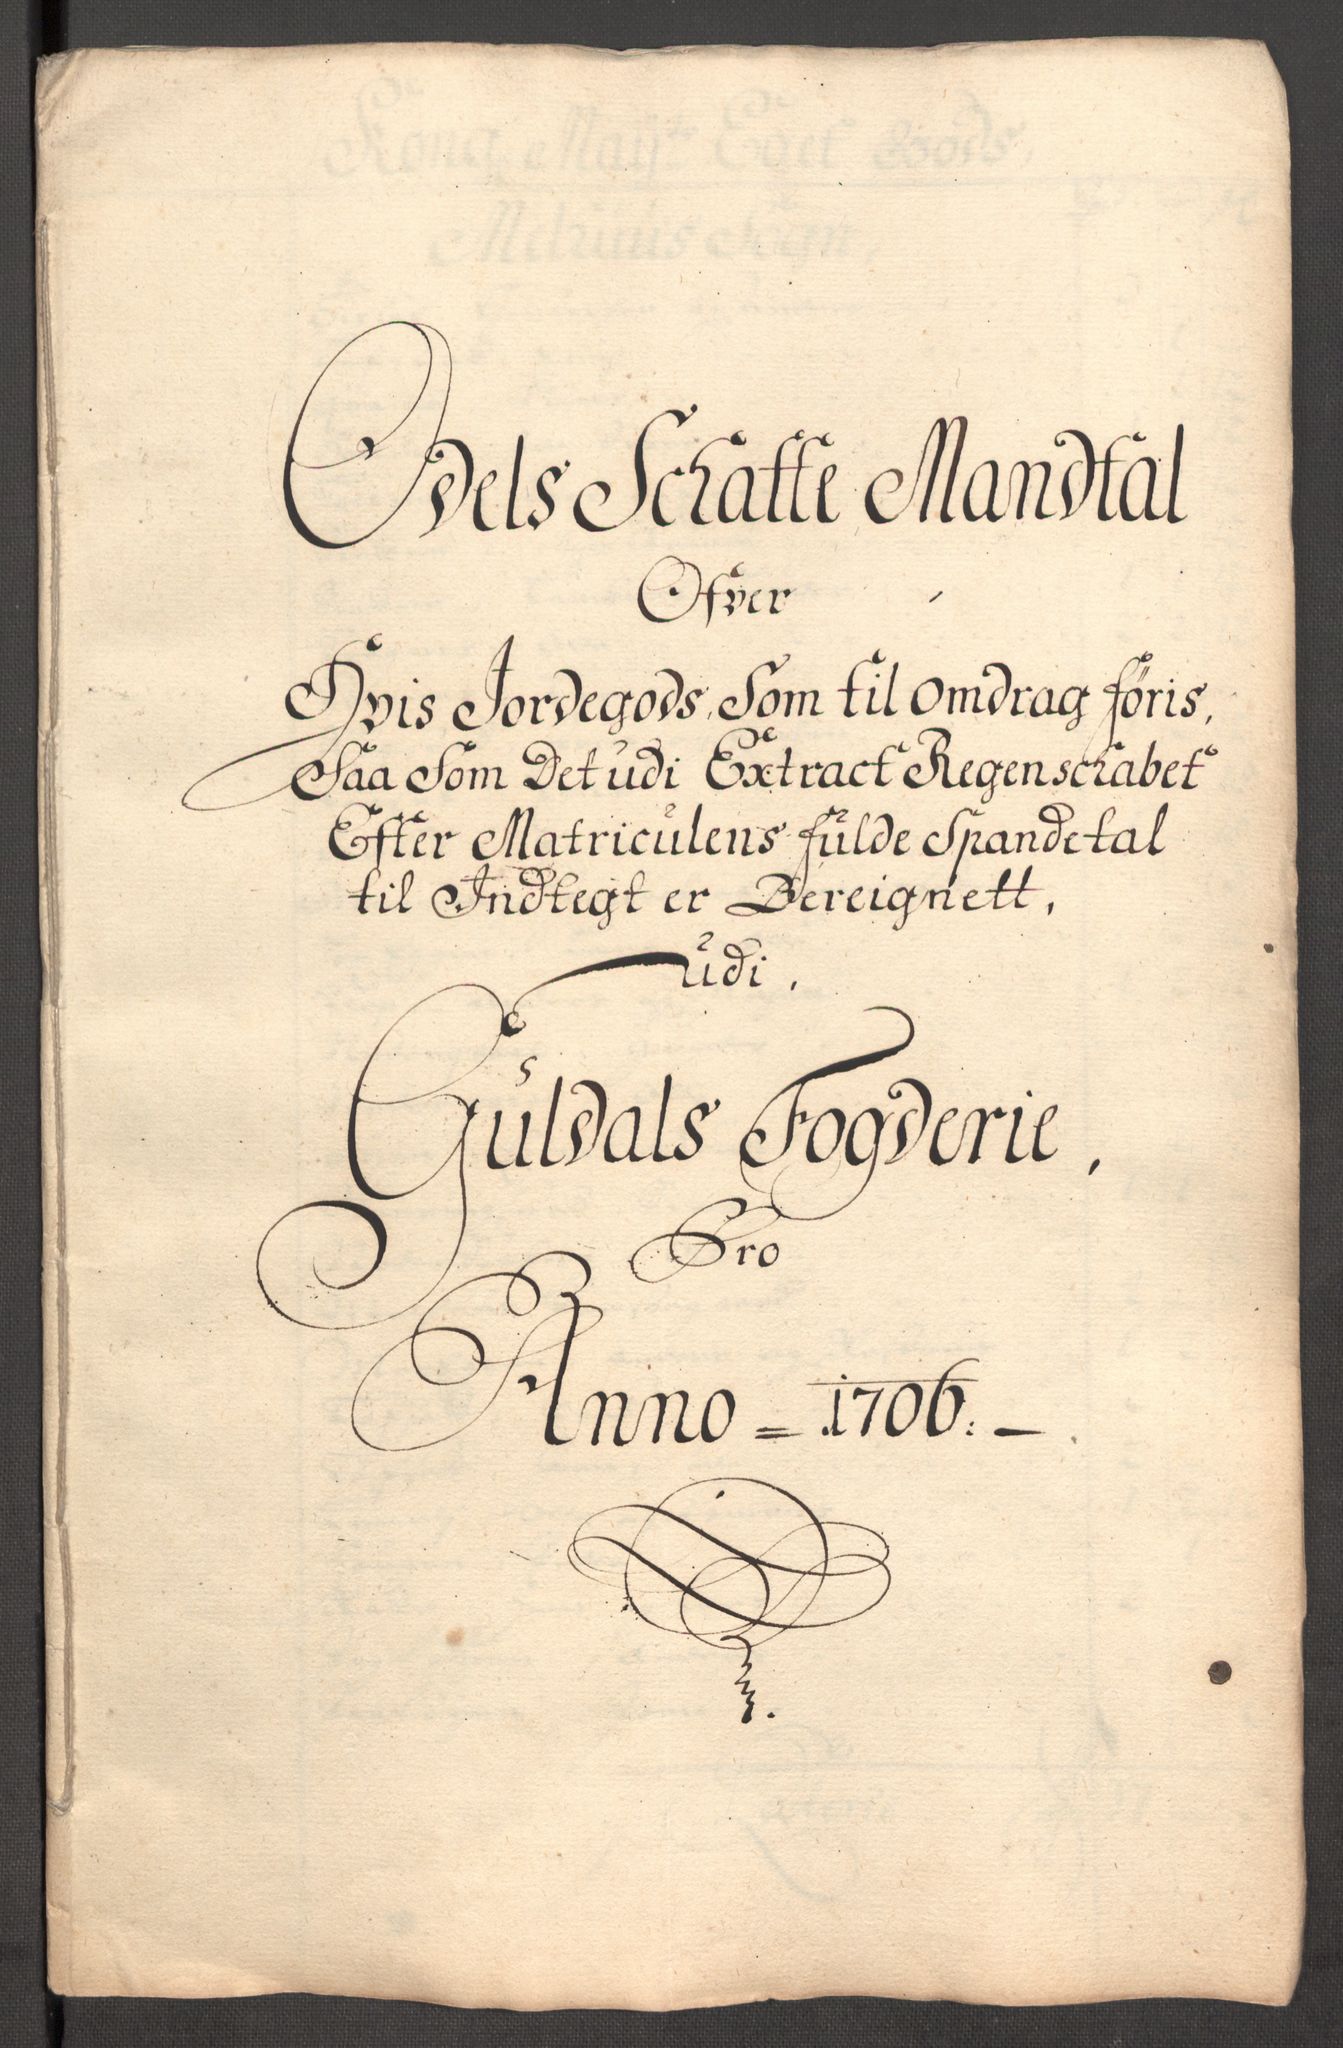 Odels Schatte Mandtal
Ofver
Hvis Jordegods, Som til omdrag föris,
Saa Som Det udi Extract Regenschabet
Efter Matriculens fulde Spandetal
til Indtegt er Bereignett,
udi,
Guldals Fogderie,
Pro
Anno = 1706. –